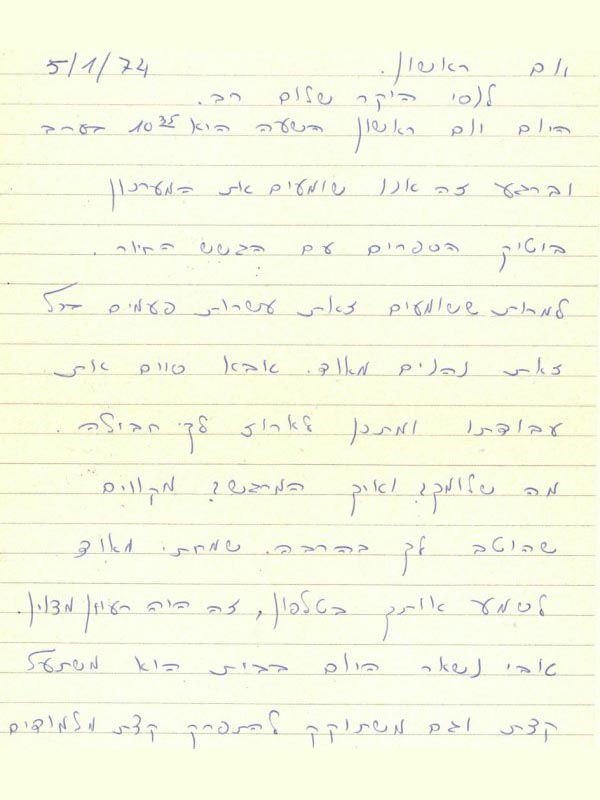 יום ראשון. 5/1/74
לנסי היקר שלום רב.
היום יום ראשון השעה היא 10³⁵ בערב
וברגע זה אנו שומעים את המערכון
בוטיק הספרים עם הגשש החיור.
למרות ששומעים זאת עשרות פעמים בכל
זאת נהנים מאוד. אבא סיים את
עבודתו ומתכנן לארוז לך חבילה.
מה שלומך? ואיך המרגש? מקווים
שהוטב לך בהרבה. שמחתי מאוד
לשמע אותך בטלפון, זה היה רעיון מצוין.
טובי נשאר היום בבית הוא משתעל
קצת וגם משתוקק להתפרק קצת מלמודים